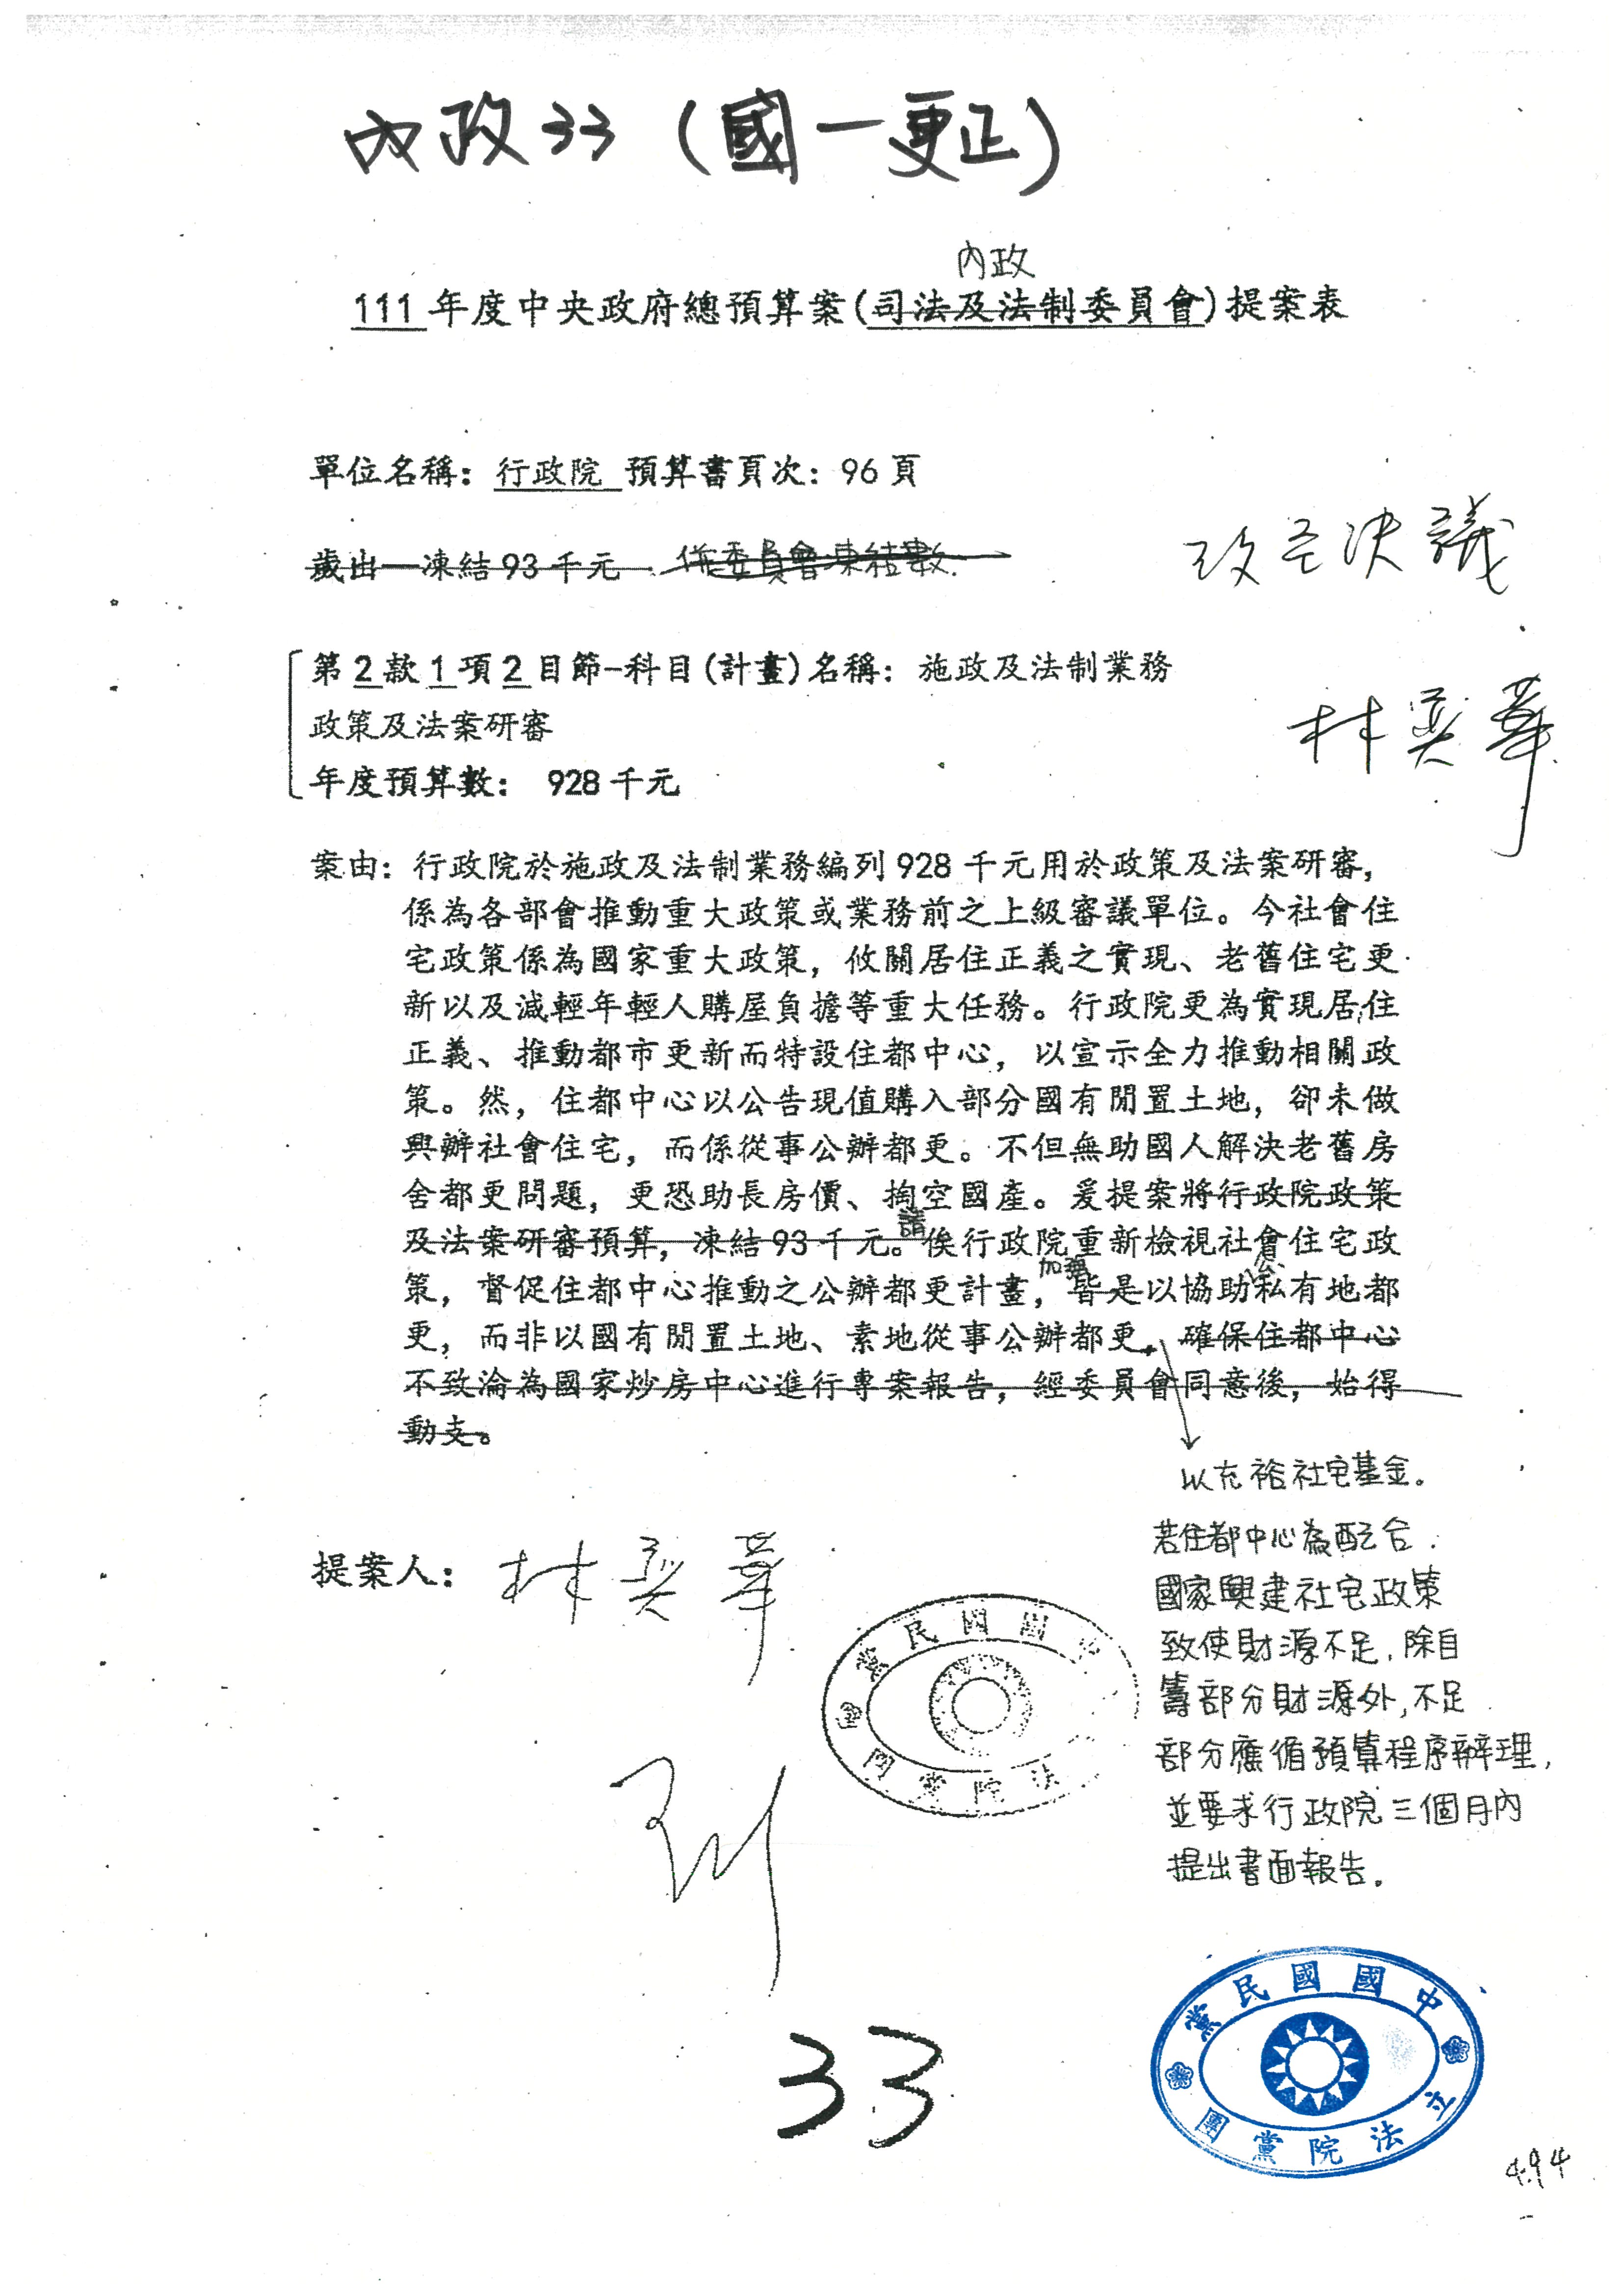 內政33(國一更正)
內政
111年度中央政府總預算案(司法及法制委員會)提案表
單位名稱：行政院 預算書頁次：96頁
歲出—凍結93千元 係委員會凍結數.
改為決議
第2款1項2目節-科目(計畫)名稱：施政及法制業務
政策及法案研審
年度預算數： 928千元
林奕華
案由：行政院於施政及法制業務編列928千元用於政策及法案研審，
係為各部會推動重大政策或業務前之上級審議單位。今社會住
宅政策係為國家重大政策，攸關居住正義之實現、老舊住宅更
新以及減輕年輕人購屋負擔等重大任務。行政院更為實現居住
正義、推動都市更新而特設住都中心，以宣示全力推動相關政
策。然，住都中心以公告現值購入部分國有閒置土地，卻未做
興辦社會住宅，而係從事公辦都更。不但無助國人解決老舊房
舍都更問題，更恐助長房價、掏空國產。爰提案將行政院政策
請
及法案研審預算，凍結93千元。俟行政院重新檢視社會住宅政
加強 公、
策，督促住都中心推動之公辦都更計畫，皆是以協助私有地都
更，而非以國有閒置土地、素地從事公辦都更，確保住都中心
不致淪為國家炒房中心進行專案報告，經委員會同意後，始得
動支。
以充裕社宅基金。
若住都中心為配合
國家興建社宅政策
致使財源不足，除自
籌部分財源外，不足
部分應循預算程序辦理，
並要求行政院三個月內
提出書面報告。
提案人：林奕華
中國國民黨
立法院黨團
33
中國國民黨
立法院黨團
494